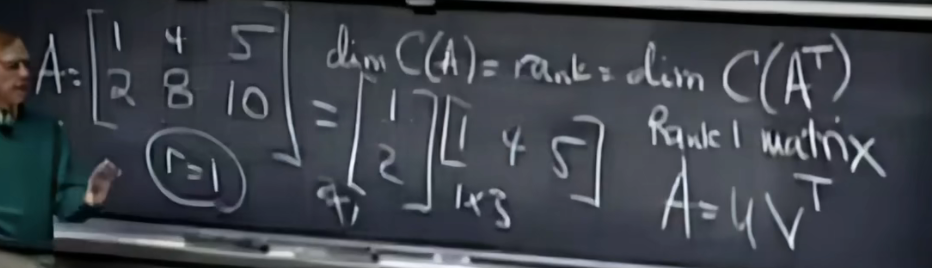 A = [1 4 5
2 8 10]
r=1
= [1
2] [1 4 5]
2x1 1x3
dim C(A) = rank = dim C(Aᵀ)
Rank 1 matrix
A = uVᵀ